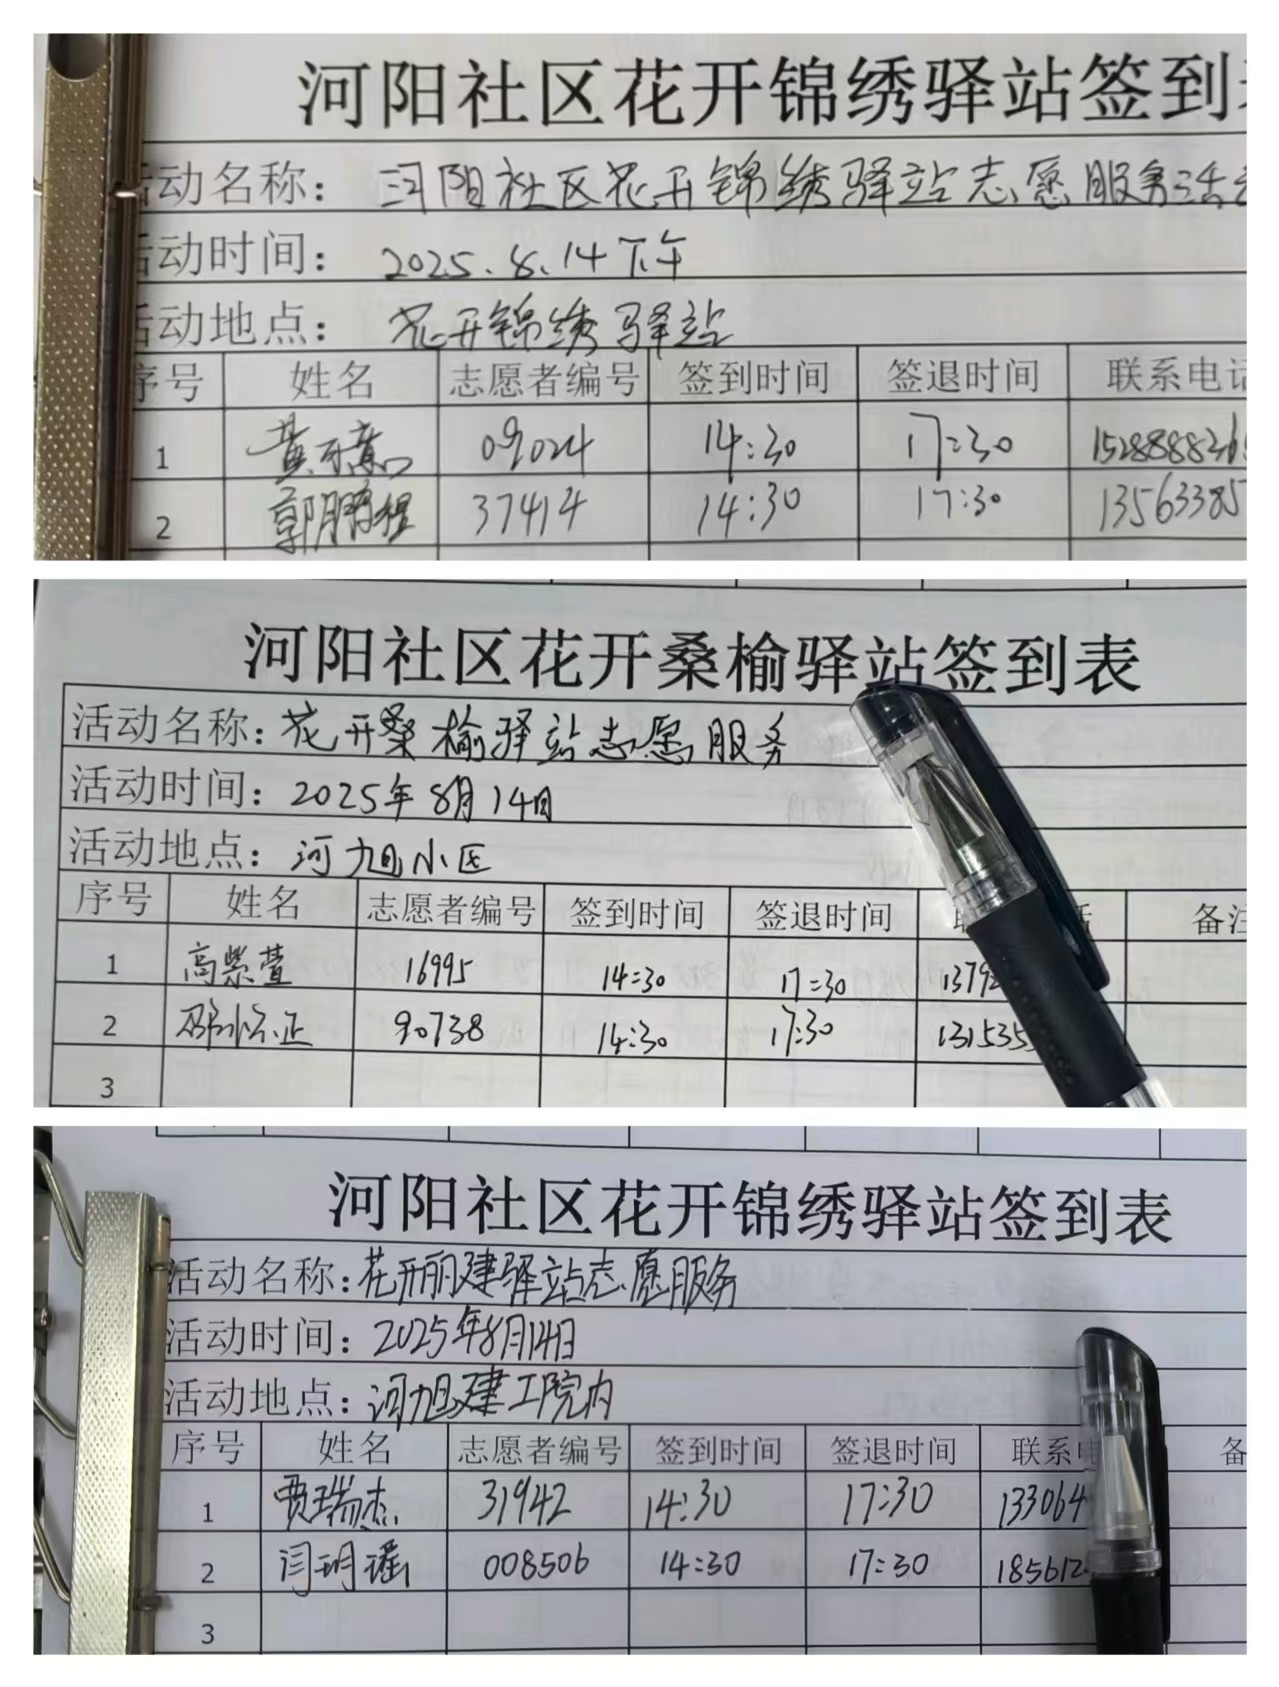 河阳社区花开锦绣驿站签到
活动名称： 河阳社区花开锦绣驿站志愿服务活
活动时间： 2025.8.14下午
活动地点： 花开锦绣驿站
序号 姓名 志愿者编号 签到时间 签退时间 联系电话
1 09024 14:30 17:30 152888826
2 郭鹏程 37414 14:30 17:30 13563385
河阳社区花开桑榆驿站签到表
活动名称: 花开桑榆驿站志愿服务
活动时间: 2025年8月14日
活动地点: 河旭小区
序号 姓名 志愿者编号 签到时间 签退时间 备注
1 高紫萱 16995 14:30 17:30 1379
2 90738 14:30 17:30 131535
3
河阳社区花开锦绣驿站签到表
活动名称: 花开丽建驿站志愿服务
活动时间: 2025年8月14日
活动地点: 河旭建工院内
序号 姓名 志愿者编号 签到时间 签退时间 联系电 备
1 贾瑞杰 31942 14:30 17:30 133064
2 闫玥瑶 008506 14:30 17:30 185612
3